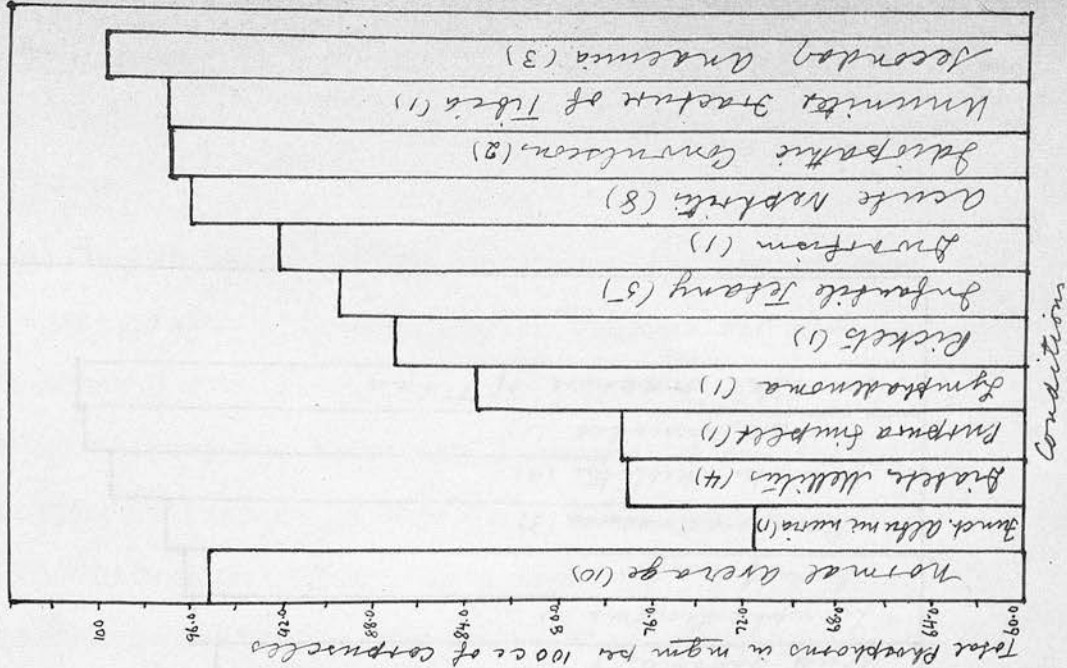 Total Phosphorus in mgm per 100 cc of corpuscles
60.0 64.0 68.0 72.0 76.0 80.0 84.0 88.0 92.0 96.0 100
Conditions
Normal average (10)
Funct. Albuminuria (1)
Diabetes Mellitus (4)
Purpura Simplex (1)
Lymphadenoma (1)
Rickets (1)
Infantile Tetany (5)
Dwarfism (1)
Acute Nephritis (8)
Idiopathic Convulsions (2)
Ununited Fracture of Tibia (1)
Secondary Anaemia (3)